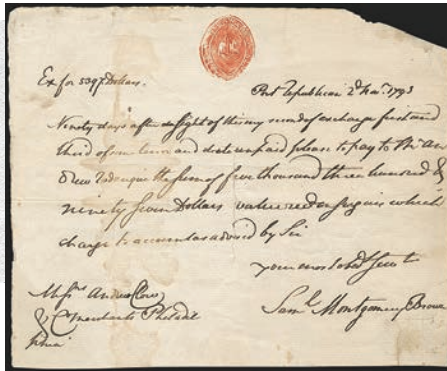 Ex for 5397 Dollars.
Port Republican 2d 1793
Ninety days after sight of this my second of exchange first and
third of same tenor and date unpaid please to pay to Mr An
drew the sum of five thousand three hundred &
ninety seven Dollars value red in which
charge to account as advised by Sir
your most obdt Servt
Messrs Andrew Clow Saml Montgomery Brown
& C Merchants Philadel
phia